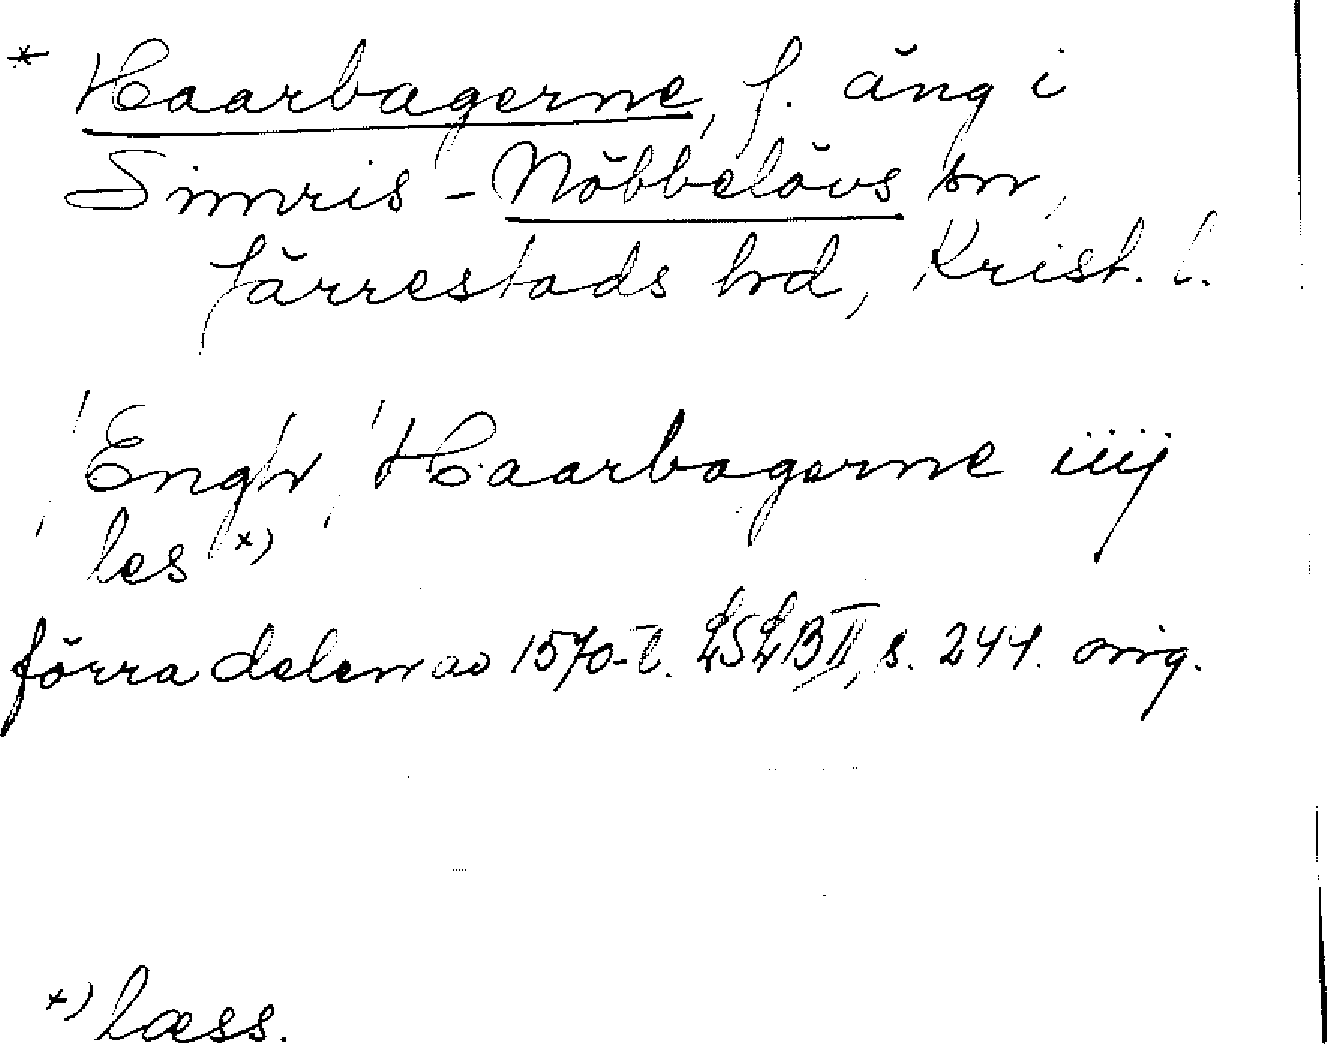 * Haarbagerne, f. äng i
Simris-Nöbbelövs sn,
Järrestads hd, Krist. l.
"Engh" Haarbagerne iiij
les x)
förra delen av 1570-t. LSLB II, s. 244. orig.
x) læss.